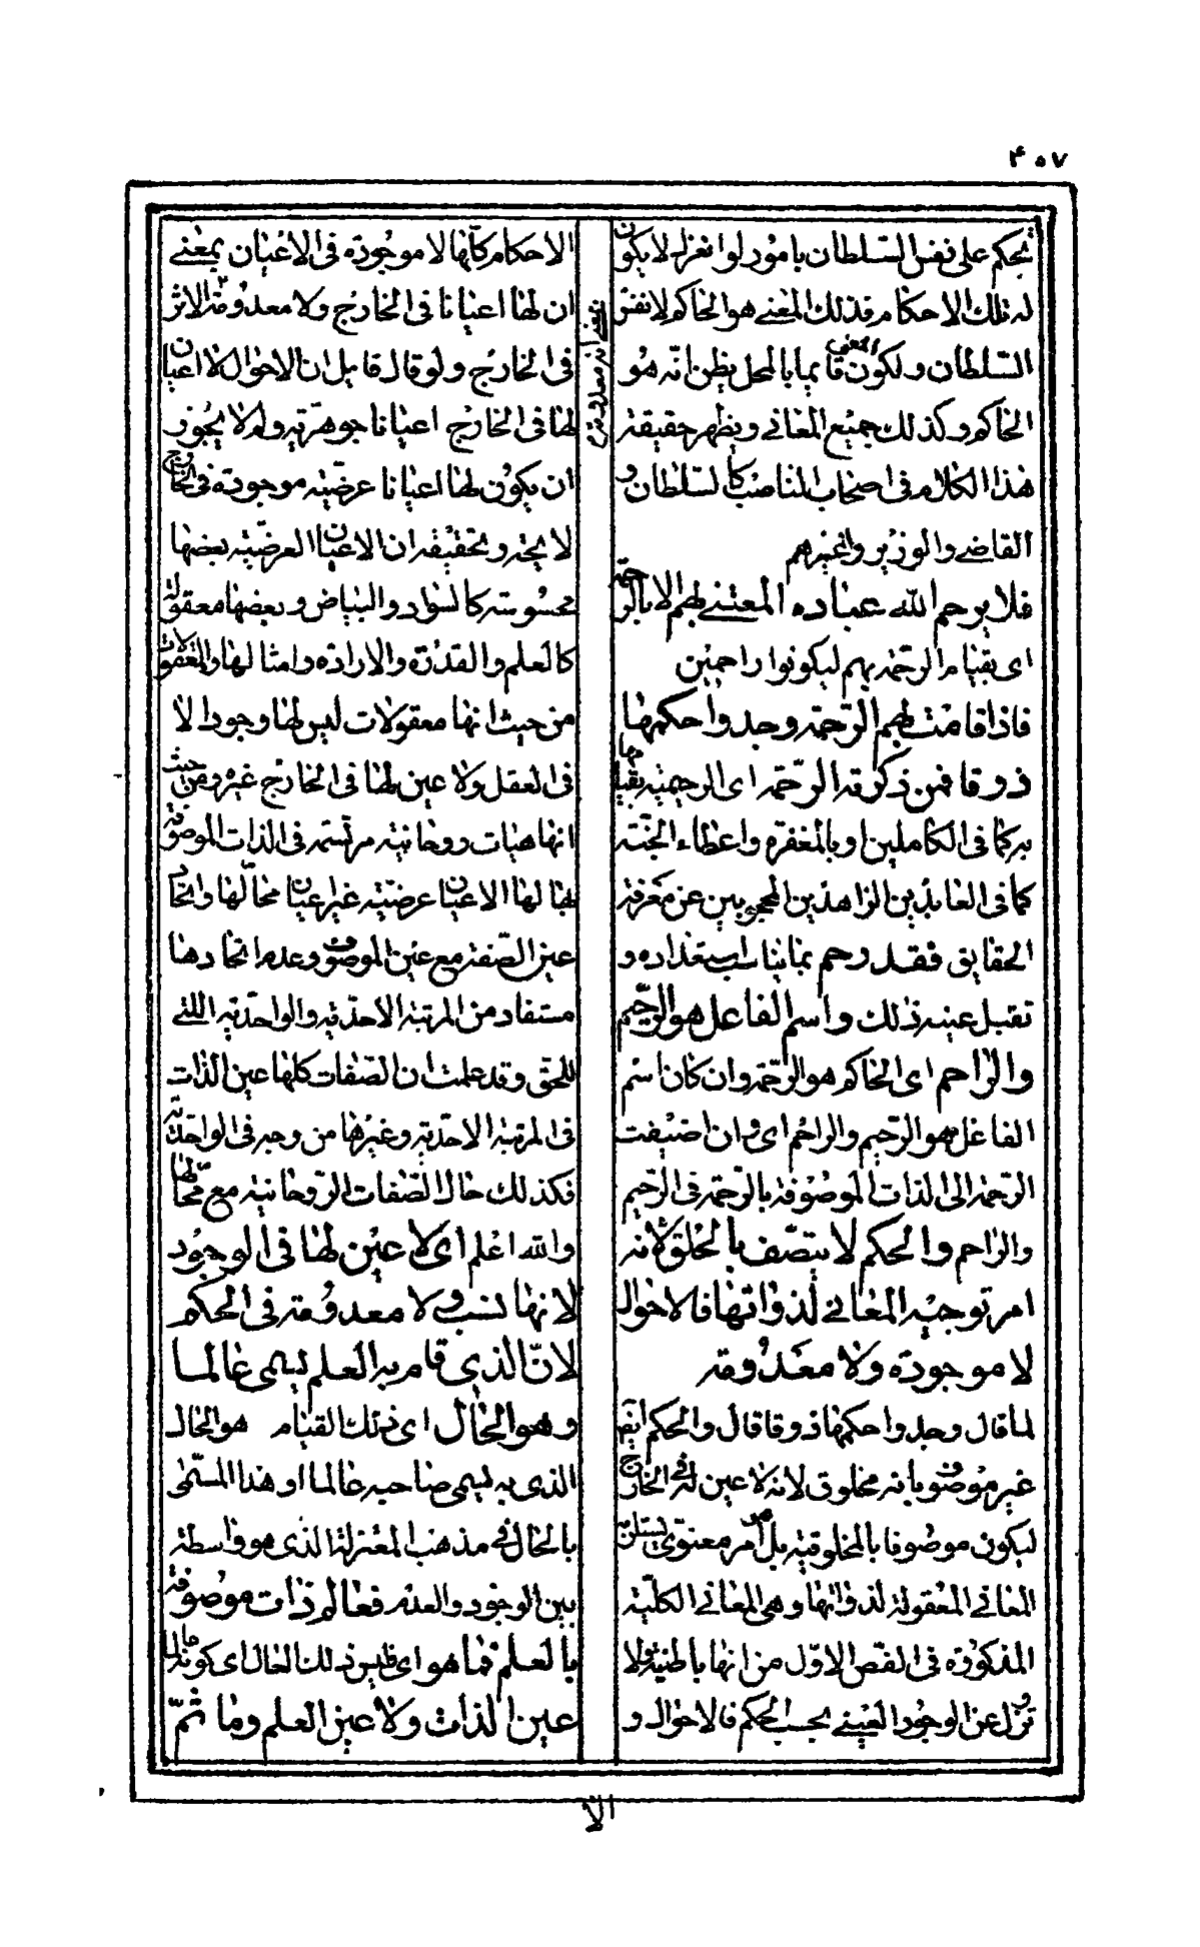 ۴۰۷
يحكم على نفس السلطان بامور لو انعزل لا يكون
له تلك الاحكام فذلك المعنى هو الحاكم لا نفس
السلطان ولكون المعنى قايما بالمحل يظن انه هو
الحاكم وكذلك جميع المعانى ويظهر حقيقة
هذا الكلام فى اصحاب المناصب كالسلطان و
القاضى والوزير وغيرهم
فلا يرحم الله عباده المعتنى لهم الا بالرحمة
اى بقيام الرحمة بهم ليكونوا راحمين
فاذا قامت بهم الرحمة وجدوا حكمها
ذوقا فمن ذكرته الرحمة اى الرحيمية بقيامها
به كما فى الكاملين او بالمغفرة واعطاء الجنة
كما فى العابدين الزاهدين المحجوبين عن معرفة
الحقايق فقد رحم بما يناسب استعداده و
تقبل عينه ذلك واسم الفاعل هو الرحيم
والراحم اى الحاكم هو الرحمة وان كان اسم
الفاعل هو الرحيم والراحم اى وان اضيفت
الرحمة الى الذات الموصوفة بالرحمة فى الرحيم
والراحم والحكم لا يتصف بالخلق لانه
امر توجبه المعانى لذواتها فالاحوال
لا موجودة ولا معدومة
لما قال وجدوا حكمها ذوقا قال والحكم ايضا
غير موصوف بانه مخلوق لانه لا عين له فى الخارج
ليكون موصوفا بالمخلوقية بل هو امر معنوى يستلزمه
المعانى المعقولة لذواتها وهى المعانى الكلية
المذكورة فى الفص الاول من انها باطنة ولا
تزل عن الوجود العينى بحسب الحكم فالاحوال و
الاحكام كلها لا موجودة فى الاعيان بمعنى
ان لها اعيانا فى الخارج ولا معدومة الاثر
فى الخارج ولو قال قايل ان الاحوال لا اعيان
لها فى الخارج اعيانا جوهرية ولم لا يجوز
ان يكون لها اعيانا عرضية موجودة فى الخارج
لا يتجه وتحقيقه ان الاعيان العرضية بعضها
محسوسة كالسواد والبياض وبعضها معقولة
كالعلم والقدرة والارادة وامثالها والمعقولات
من حيث انها معقولات ليس لها وجود الا
فى العقل ولا عين لها فى الخارج غيره ومن حيث
انها هيات روحانية مرتسمة فى الذات الموصوفة
بها لها الاعيان عرضية غير اعيان محالها واتحاد
عين الصفة مع عين الموصوف وعدم اتحادها
مستفاد من المرتبة الاحدية والواحدية اللتى
للحق وقد علمت ان الصفات كلها عين الذات
فى المرتبة الاحدية وغيرها من وجه فى الواحدية
فكذلك حال الصفات الروحانية مع محالها
والله اعلم اى لا عين لها فى الوجود
لانها نسب ولا معدومة فى الحكم
لان الذى قام به العلم يسمى عالما
وهو الحال اى ذلك القيام هو الحال
الذى به يسمى صاحبه عالما او هذا المسمى
بالحال فى مذهب المعتزلة الذى هو واسطة
بين الوجود والعدم فعالم ذات موصوفة
بالعلم فما هو اى فليس ذلك الحال اى كونه عالما
عين الذات ولا عين العلم وما ثم
الا